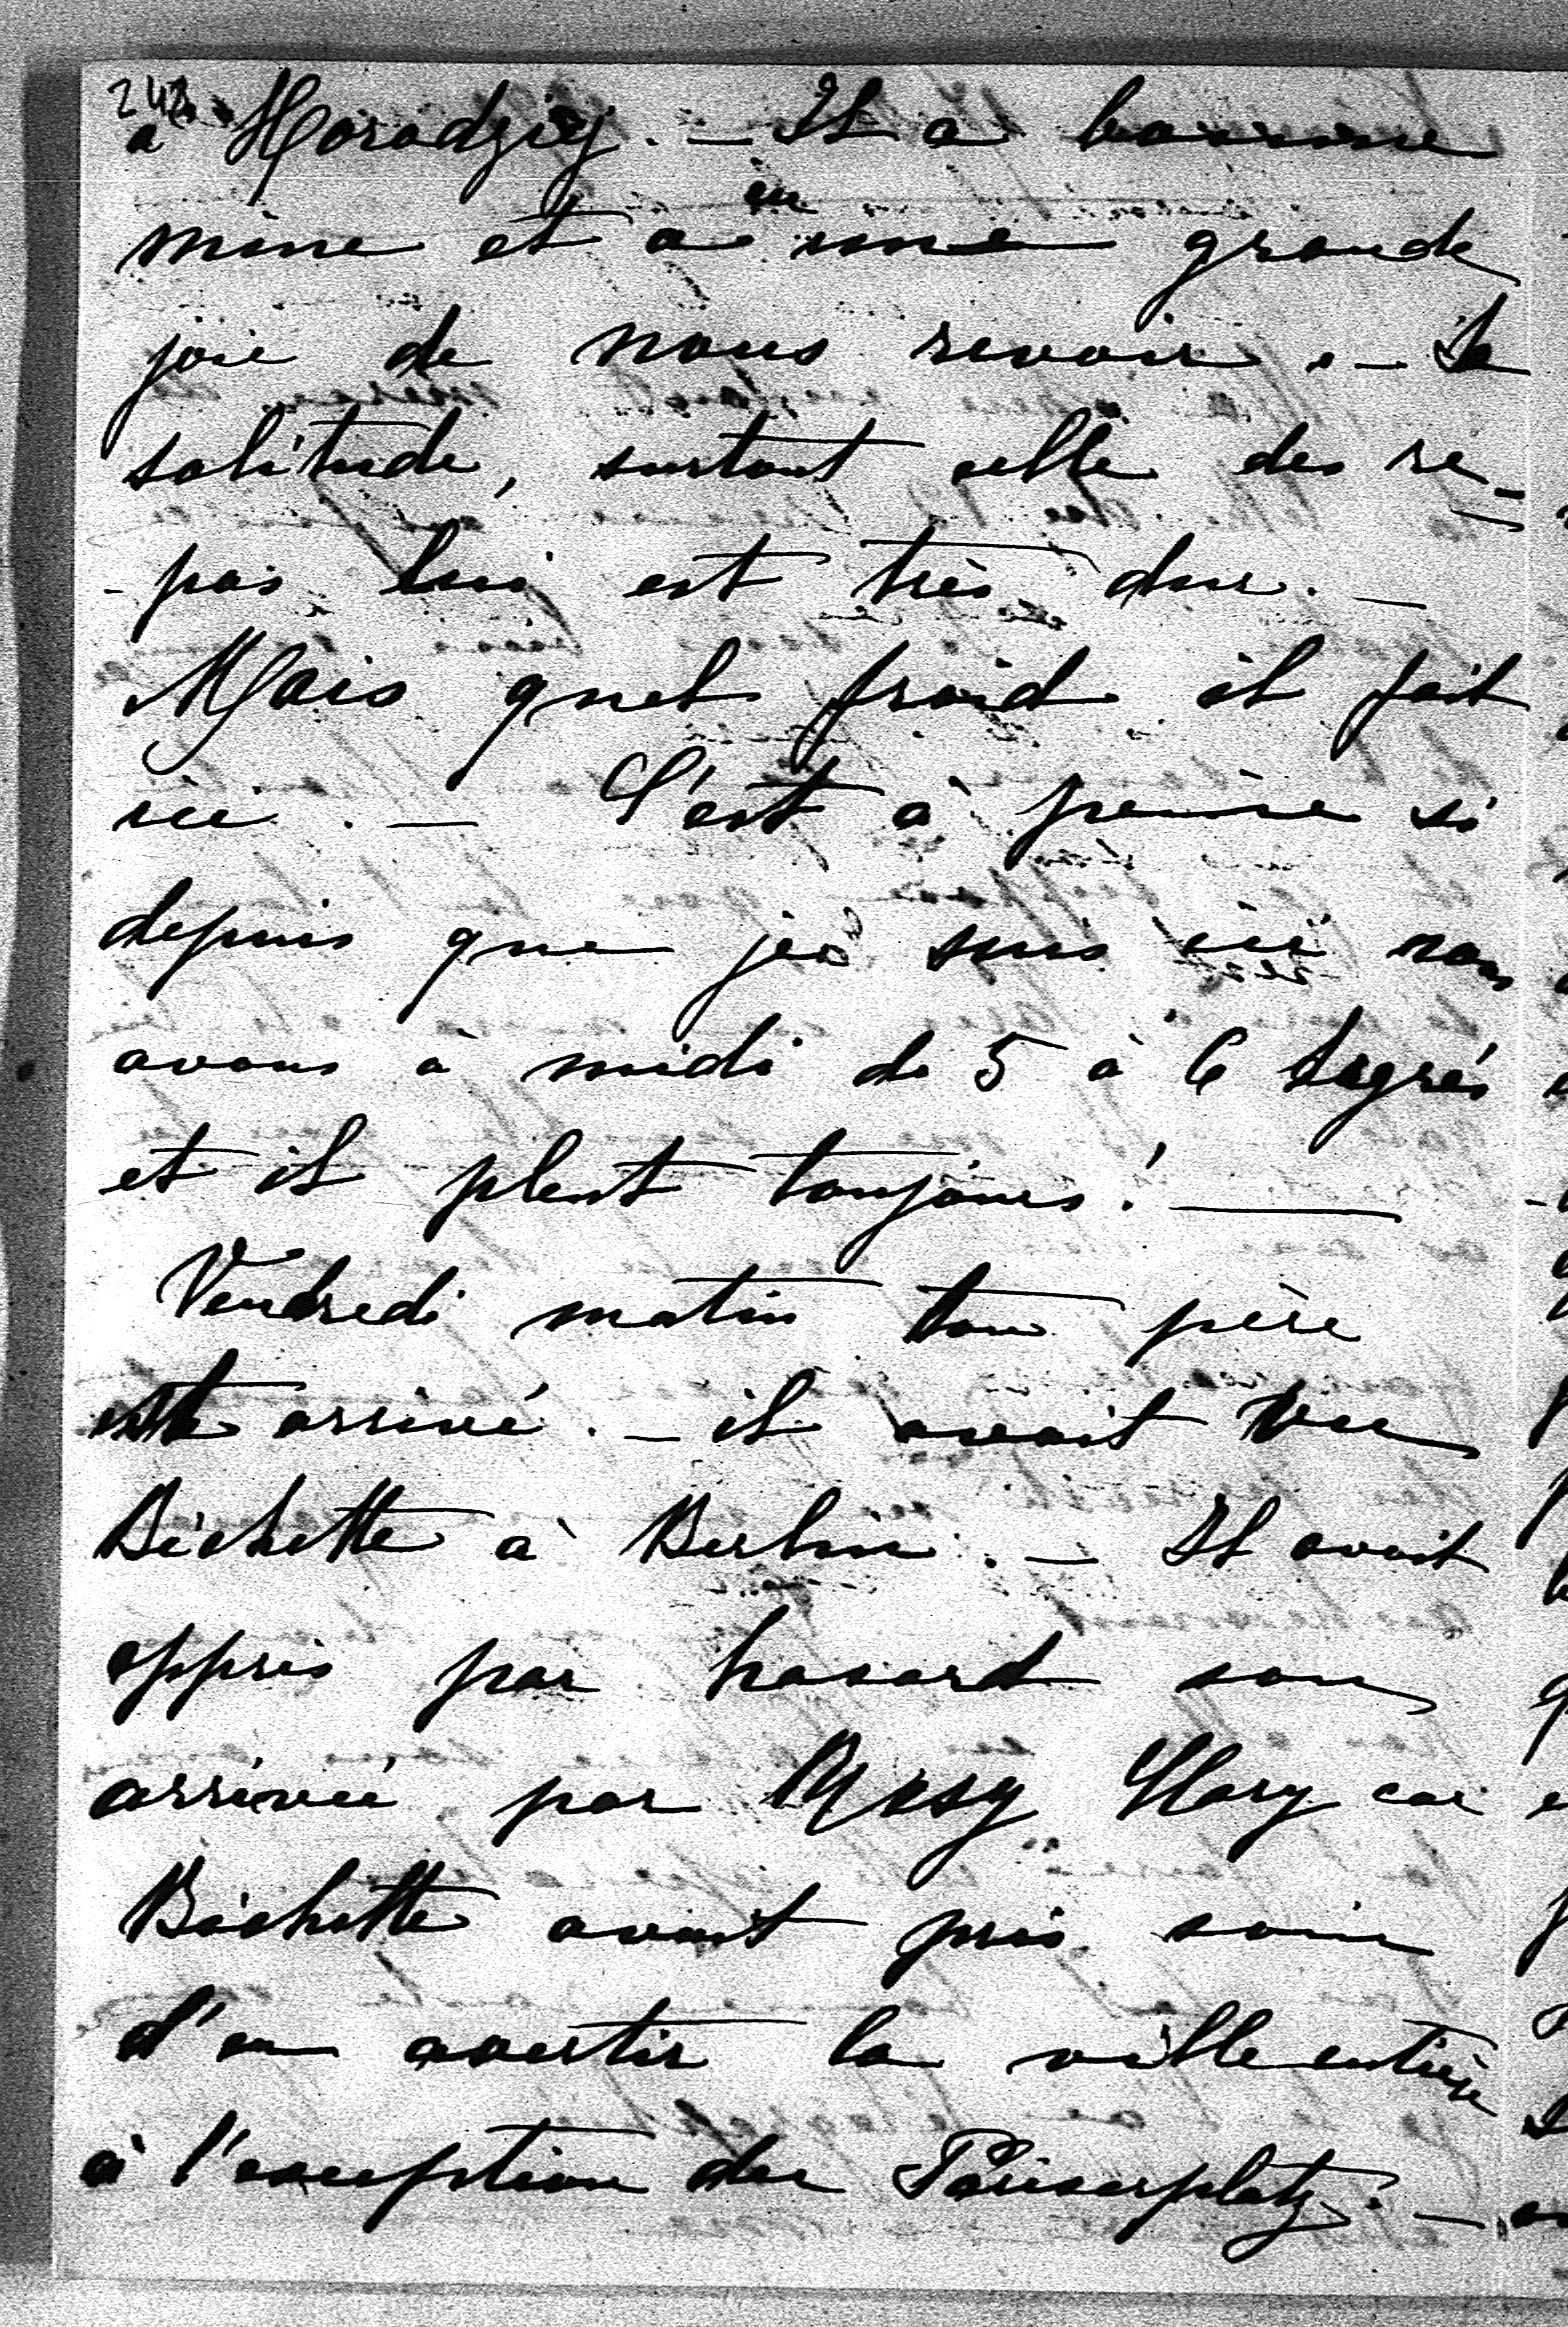 248
à Horodziej. — Il a bonne
mine et a eu une grande
joie de nous revoir. — La
solitude, surtout celle des re-
-pas lui est très dur. —
Mais quel froid il fait
ici. — C'est à peine si
depuis que je suis ici nous
avons à midi de 5 à 6 degrés
et il pleut toujours! —
Vendredi matin ton père
est arrivé. — il avait vu
Bichette à Berlin. — Il avait
appris par hasard son
arrivée par Mary car
Bichette avait pris soin
d'en avertir la ville entière
à l'exception du Pariserplatz. —